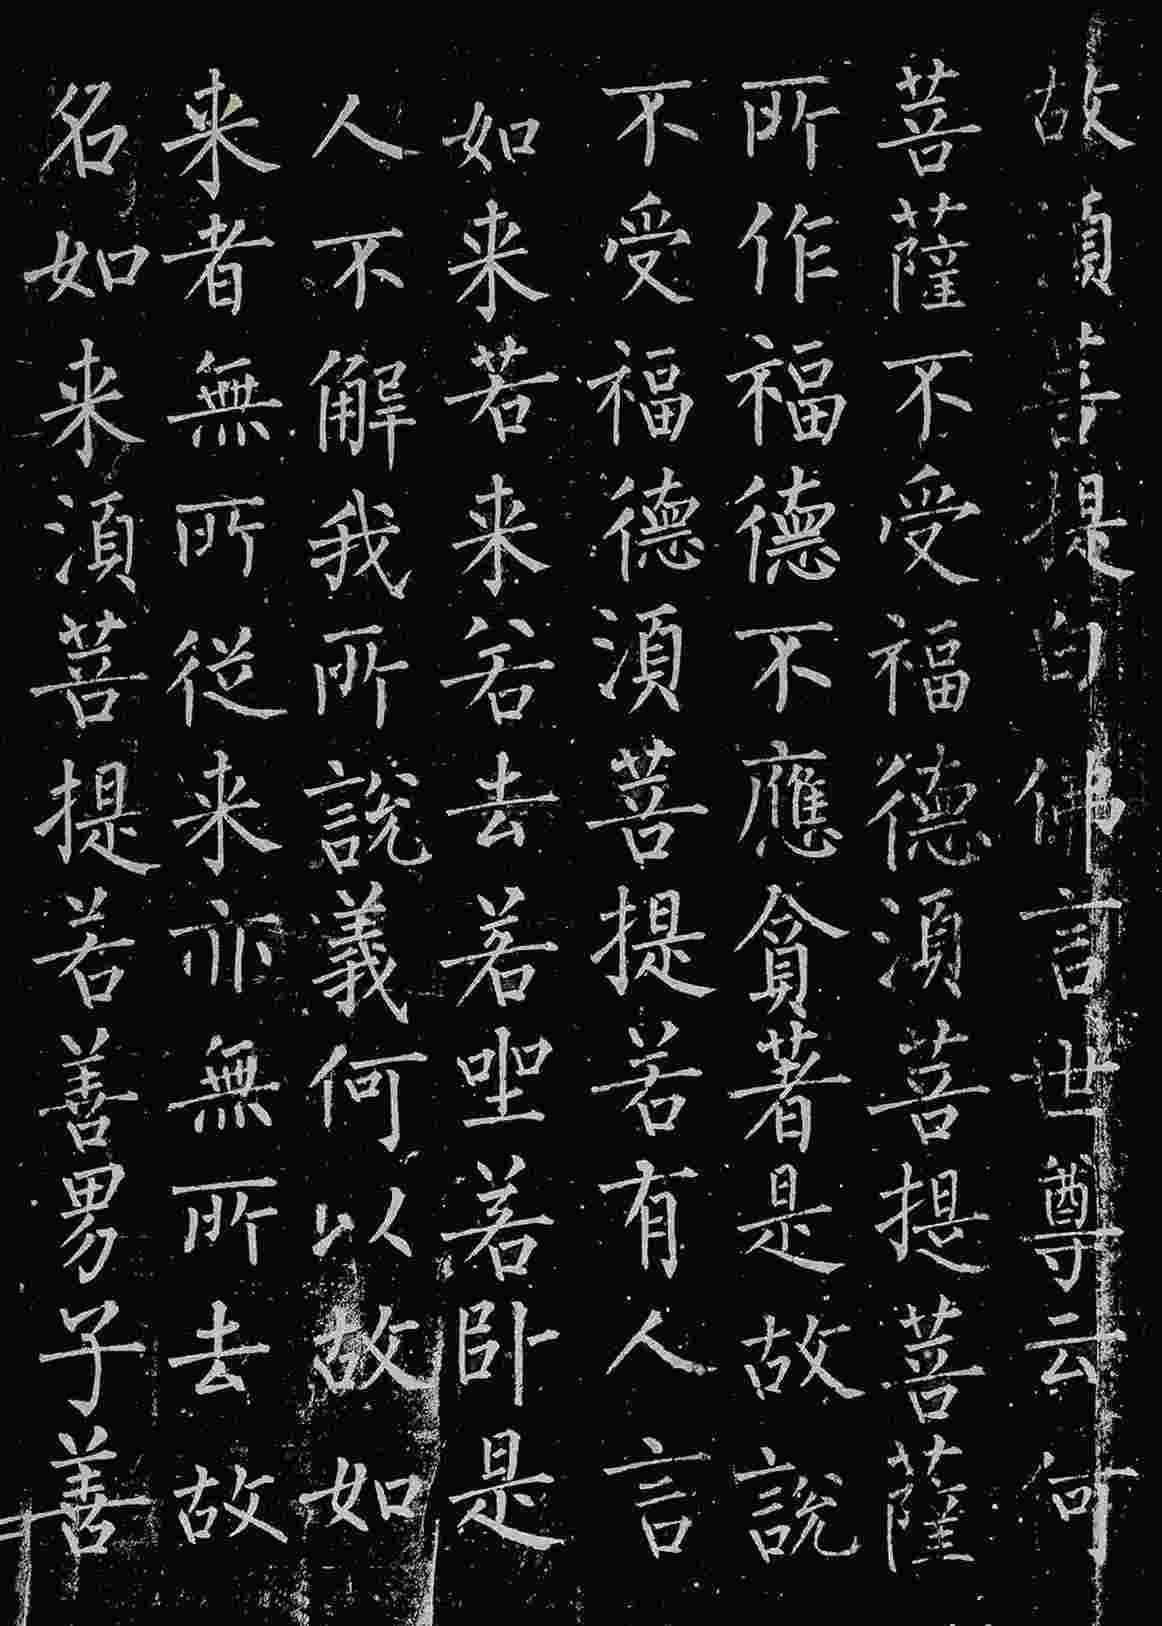 故須菩提白佛言世尊云何
菩薩不受福德須菩提菩薩
所作福德不應貪著是故說
不受福德須菩提若有人言
如来若来若去若坐若卧是
人不解我所說義何以故如
来者無所從来亦無所去故
名如来須菩提若善男子善